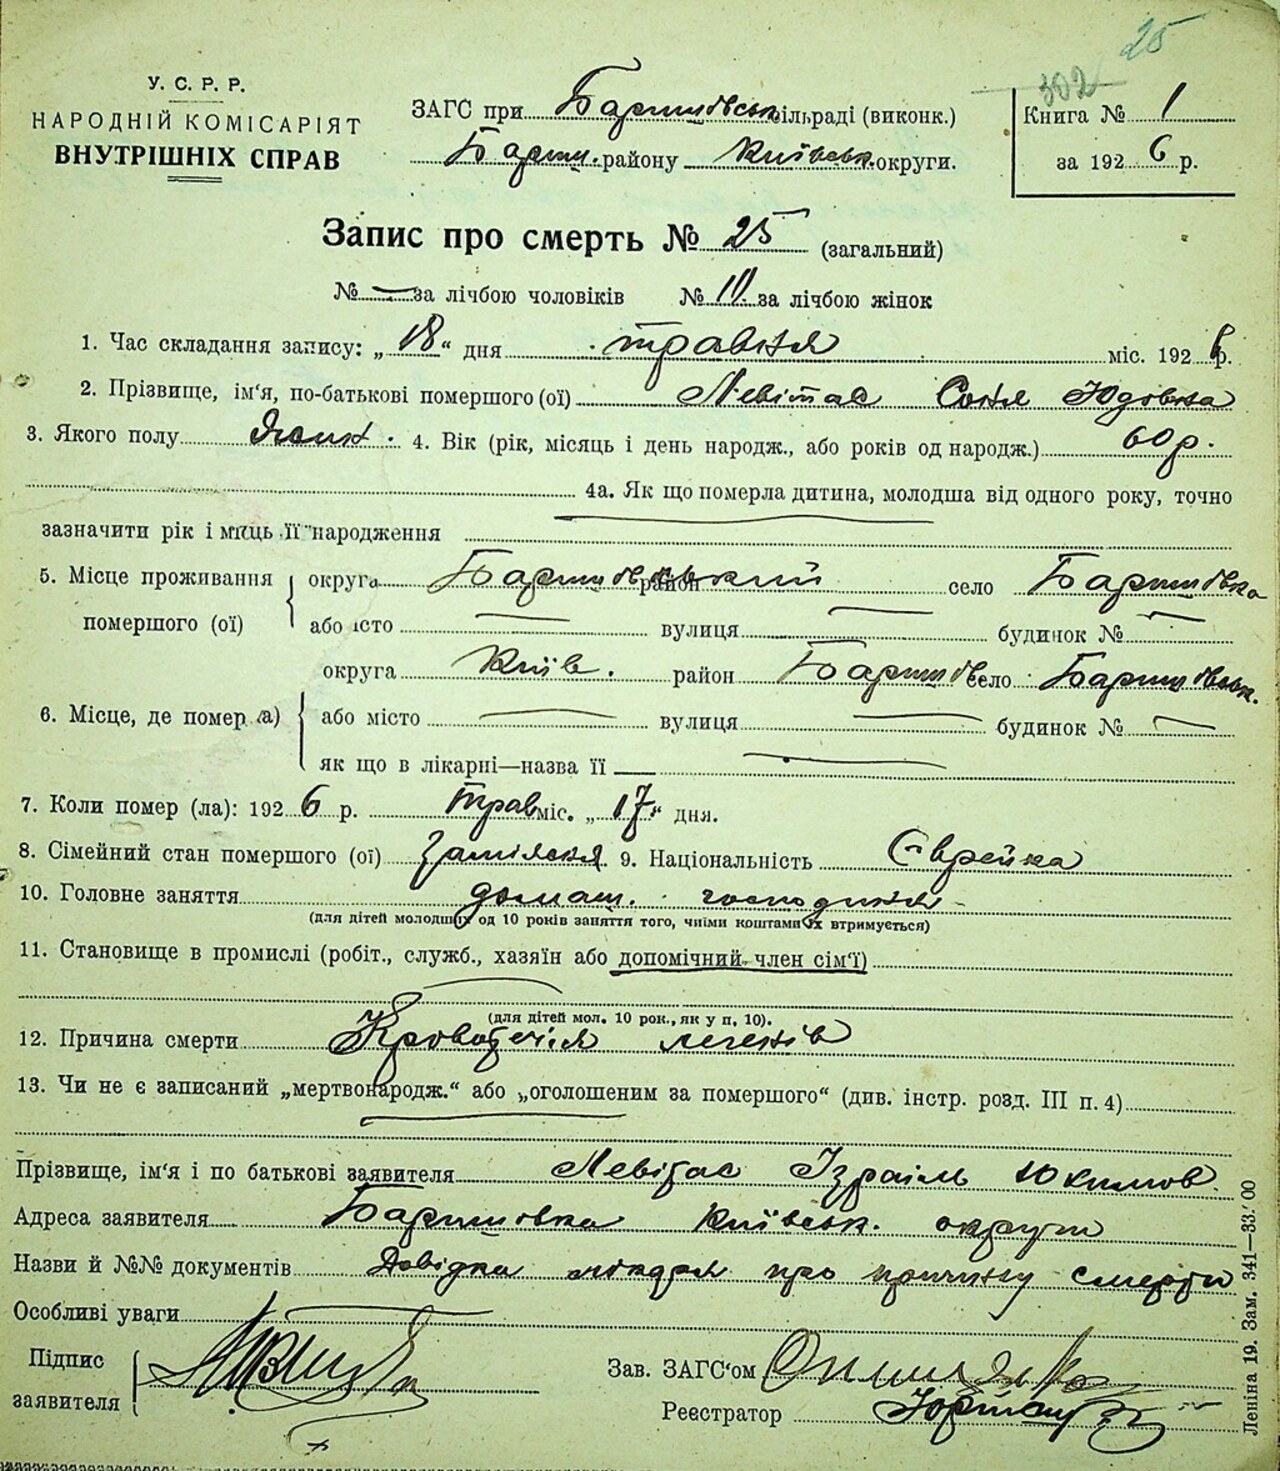 25
302
У. С. Р. Р.
НАРОДНІЙ КОМІСАРІЯТ
ВНУТРІШНІХ СПРАВ
ЗАГС при Баришівськ сільраді (виконк.)
Бариш. району Київськ. округи.
Книга № 1
за 1926 р.
Запис про смерть № 25 (загальний)
№ — за лічбою чоловіків № 10 за лічбою жінок
1. Час складання запису: „18“ дня травня міс. 1926 р.
2. Прізвище, ім'я, по-батькові помершого (ої) Левітас Соня Юдовна
3. Якого полу жін. 4. Вік (рік, місяць і день народж., або років од народж.) 60 р.
4а. Як що померла дитина, молодша від одного року, точно
зазначити рік і місць її народження
5. Місце проживання помершого (ої) округа Баришівський район село Баришівка
або місто — вулиця — будинок № —
округа Київ. район Баришів село Баришівськ.
6. Місце, де помер (а) або місто — вулиця — будинок № —
як що в лікарні—назва її —
7. Коли помер (ла): 1926 р. трав міс. „17“ дня.
8. Сімейний стан помершого (ої) заміжня 9. Національність Єврейка
10. Головне заняття домаш. господиня
(для дітей молодших од 10 років заняття того, чиїми коштами їх втримується)
11. Становище в промислі (робіт., служб., хазяїн або допомічний член сім'ї)
(для дітей мол. 10 рок., як у п. 10).
12. Причина смерти Кровотечія легенів
13. Чи не є записаний „мертвонародж.“ або „оголошеним за помершого“ (див. інстр. розд. III п. 4)
Прізвище, ім'я і по батькові заявителя Левітас Ізраіль
Адреса заявителя Баришовка Київськ. округи
Назви й №№ документів Довідка лікаря про причину смерти
Особливі уваги
Підпис заявителя
Зав. ЗАГС'ом
Реєстратор
Леніна 19. Зам. 341—33.'00